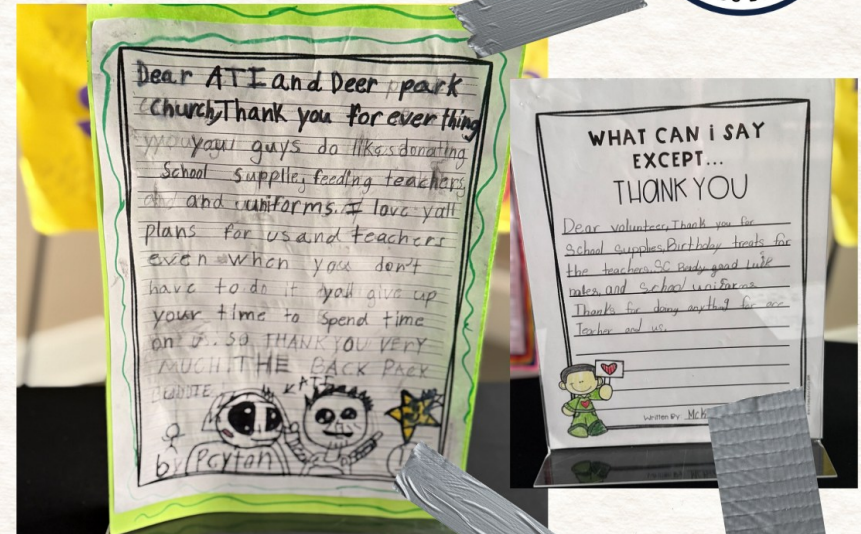 Dear ATI and Deer park
Church,Thank you for ever thing
you guys do like donating
School Supplie, feeding teachers,
and uuniforms. I love yall
plans for us and teachers
even when you don't
have to do it yall give up
your time to spend time
on us. SO THANK YOU VERY
MUCH! THE BACK PACK
by Peytan
WHAT CAN i SAY
EXCEPT...
THANK YOU
Dear volunteer, Thank you for
School Supplies, Birthday treats for
the teachers, SC Ready good luck
notes, and School uniforms.
Thanks for doing anything for our
Techer and us.
Written By: McK